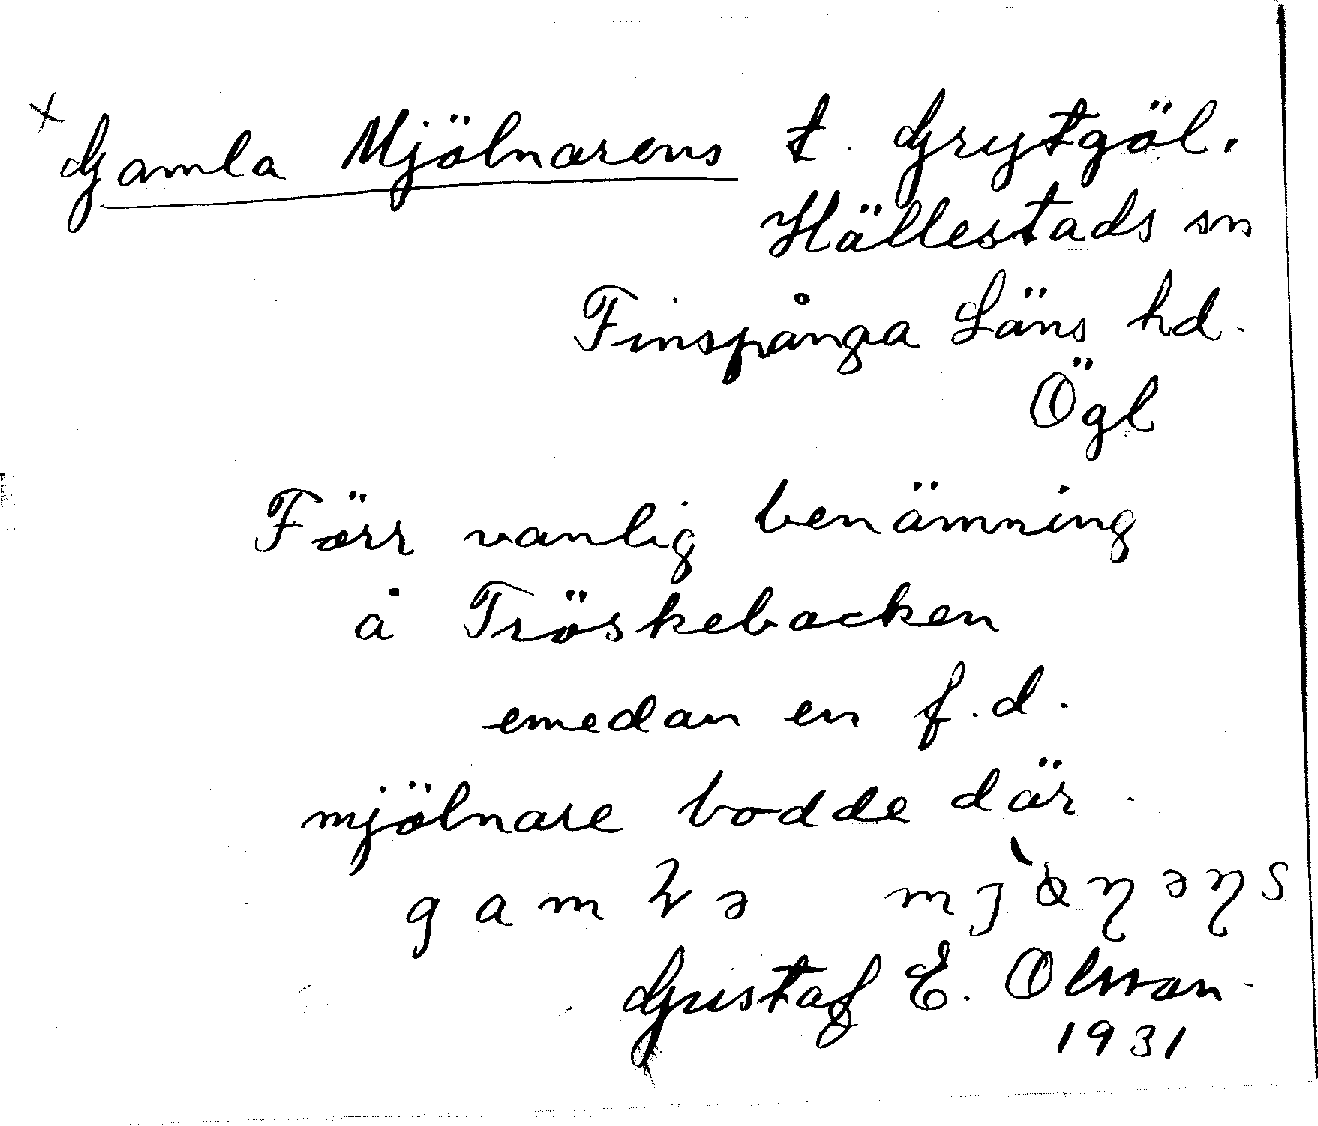 x Gamla Mjölnarens t. Grytgöl.
Hällestads sn
Finspånga Läns hd.
Ögl
Förr vanlig benämning
å Tröskebacken
emedan en f.d.
mjölnare bodde där.
Gustaf E. Olsson.
1931